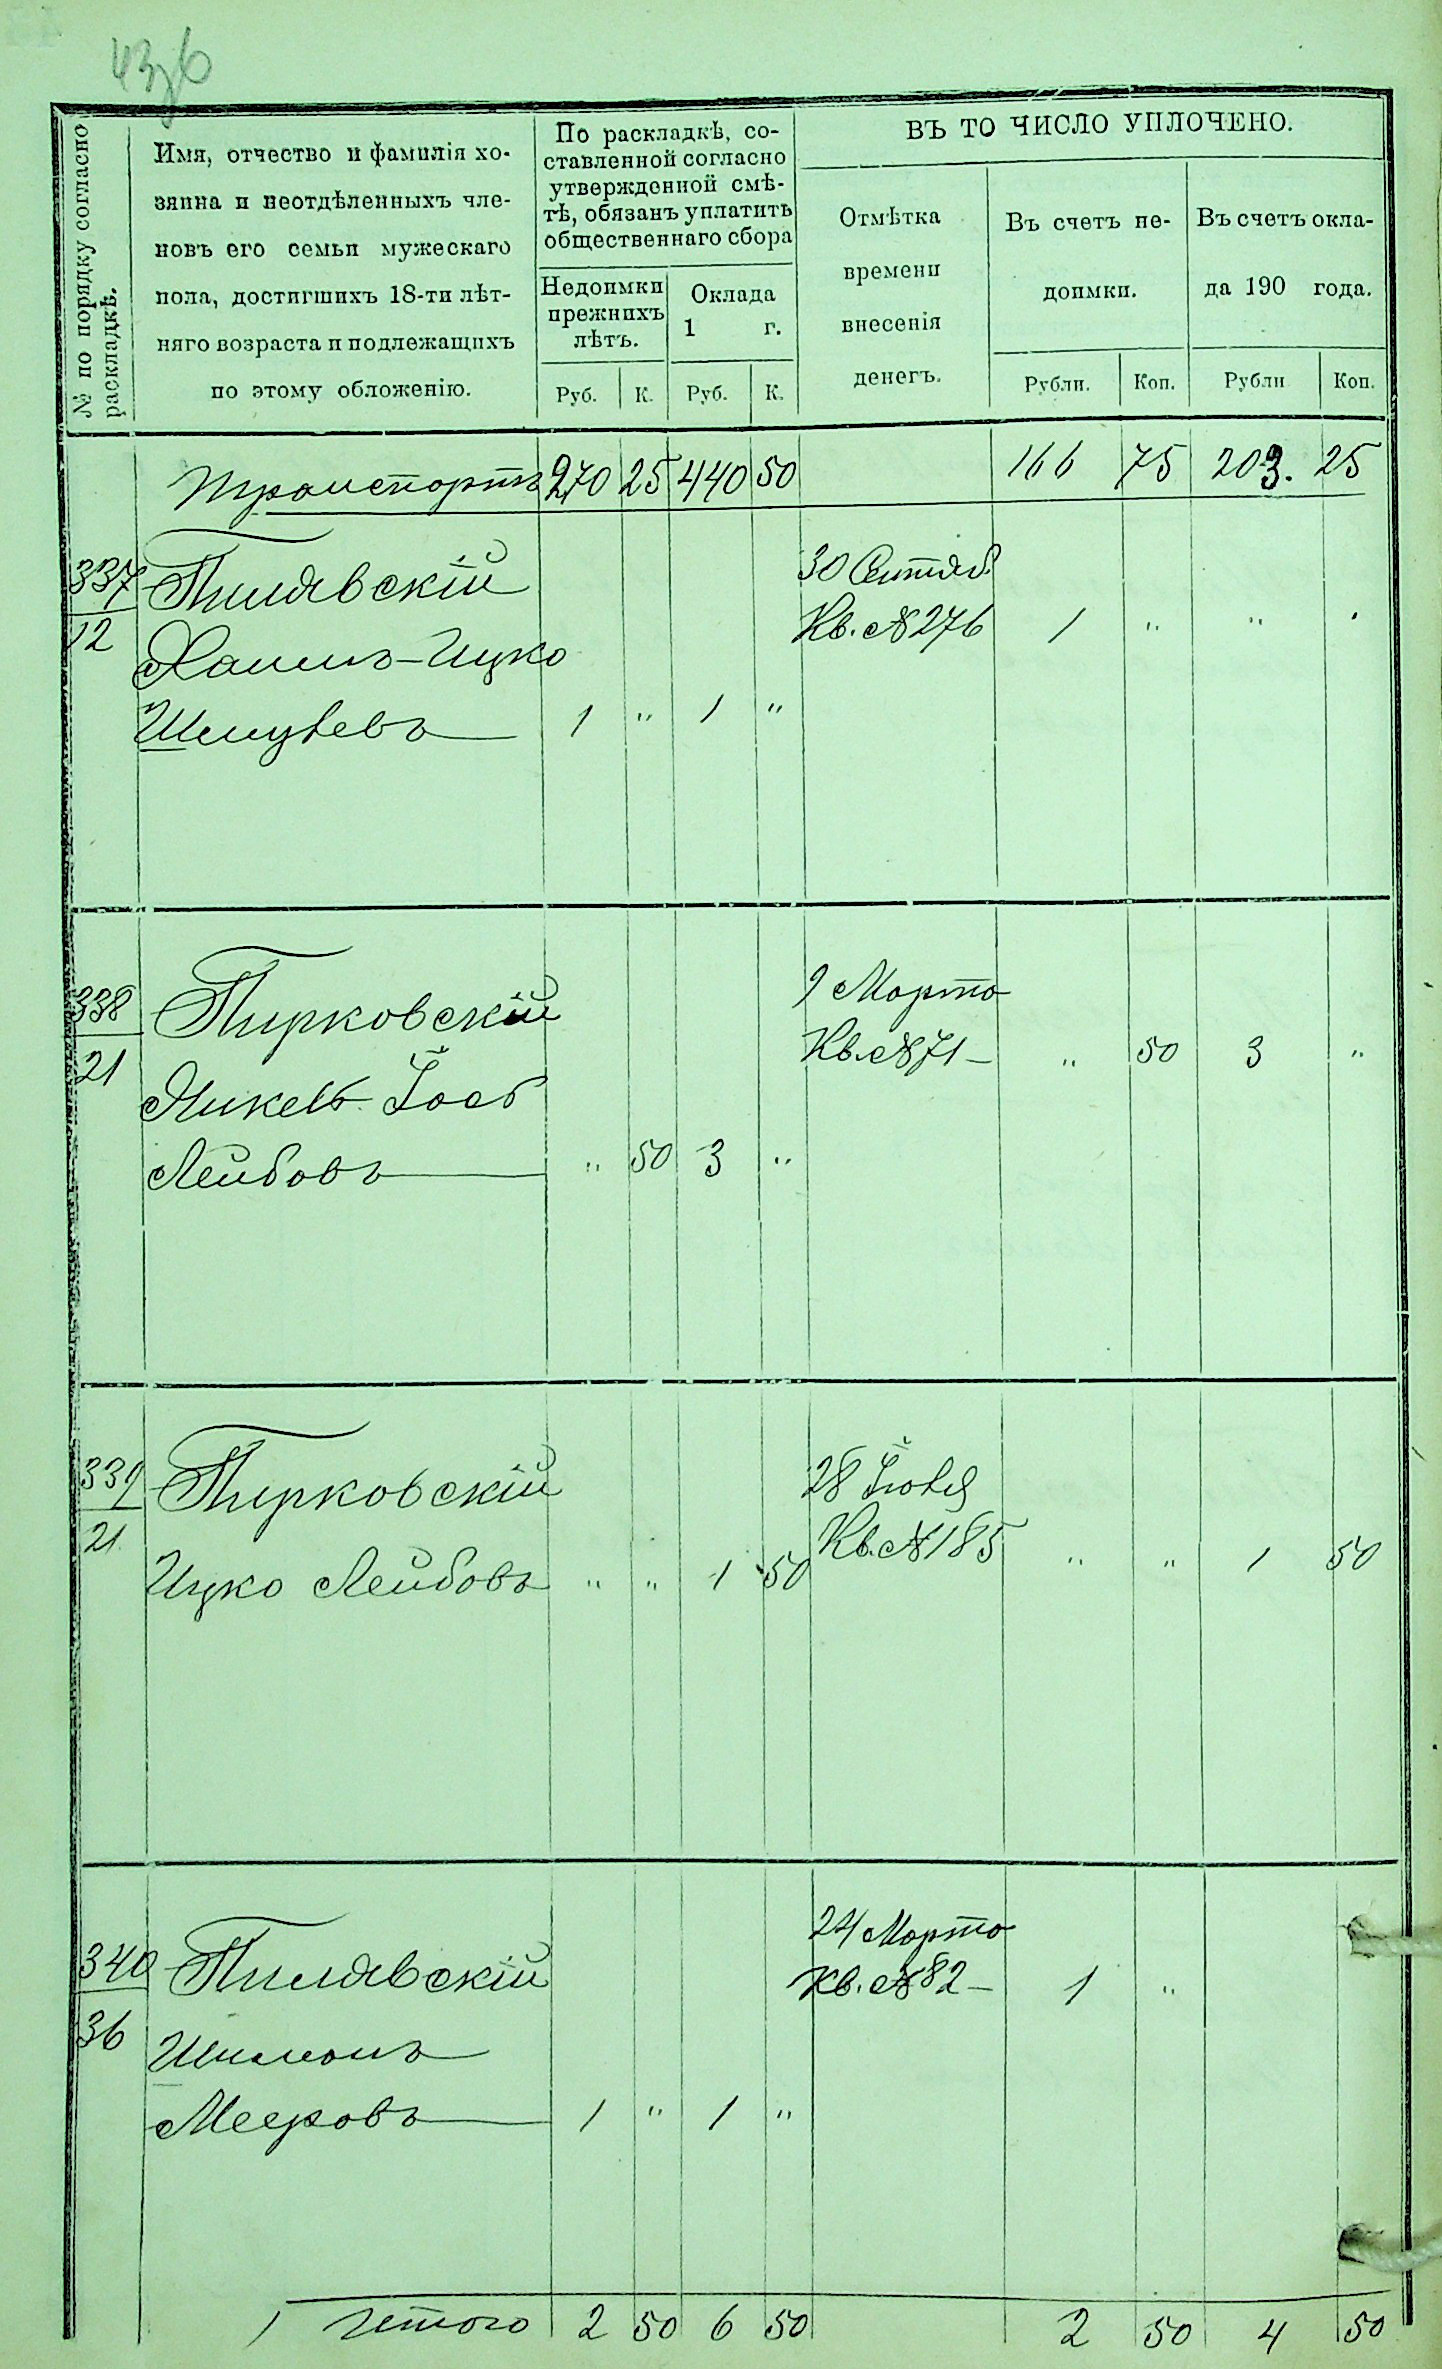 № по порядку согласно
раскладкѣ.
Имя, отчество и фамилія хо-
зяина и неотдѣленныхъ чле-
новъ его семьи мужескаго
пола, достигшихъ 18-ти лѣт-
няго возраста и подлежащихъ
по этому обложенію.
По раскладкѣ, со-
ставленной согласно
утвержденной смѣ-
тѣ, обязанъ уплатить
общественнаго сбора
Недоимки
прежнихъ
лѣтъ.
Оклада
1 г.
Руб. К. Руб. К.
ВЪ ТО ЧИСЛО УПЛОЧЕНО.
Отмѣтка
времени
внесенія
денегъ.
Въ счетъ не-
доимки.
Въ счетъ окла-
да 190 года.
Рубли. Коп. Рубли Коп.
Транспортъ 270 25 440 50 166 75 203. 25
337 Пилявскій 30 Сентяб.
12 Кв. № 276 1 " " "
Хаимъ-Ицко
Шмулевъ 1 " 1 "
338 Пирковскій 9 Марта
21 Кв. № 71 - " 50 3 "
Янкель Іось
Лейбовъ " 50 3 "
339 Пирковскій 28 Іюля
21 Кв. № 185 " " 1 50
Ицко Лейбовъ " " 1 50
340 Пилявскій 24 Марта
Кв. № 82 - 1 "
36 Шимонъ
Мееровъ 1 " 1 "
Итого 2 50 6 50 2 50 4 50